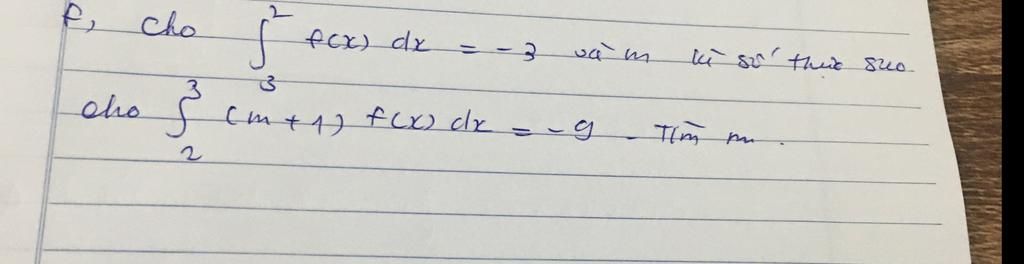 f, Cho ∫₃² f(x) dx = -3 và m là số thực sao
cho ∫₂³ (m + 1) f(x) dx = -9. Tìm m.